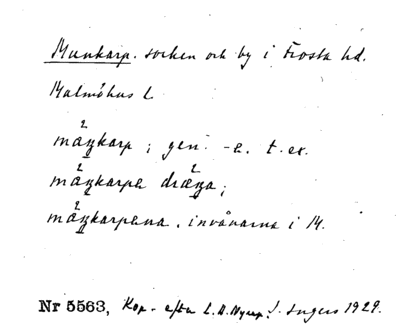 Munkarp. socken och by i Frosta hd.
Malmöhus l
måŋkarp; gen. -a. t. ex.
måŋkarpa dräŋa;
måŋkarpana. invånarna i M.
Nr 5563, Kop. efter L. P. Nyrup. I. Ingers 1929.